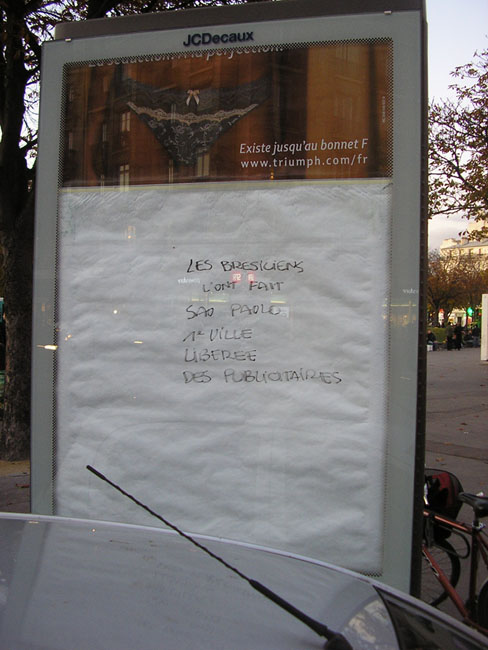 JCDecaux
Existe jusqu'au bonnet F
www.triumph.com/fr
LES BRESILIENS
L'ONT FAIT
SAO PAOLO
1e VILLE
LIBEREE
DES PUBLICITAIRES